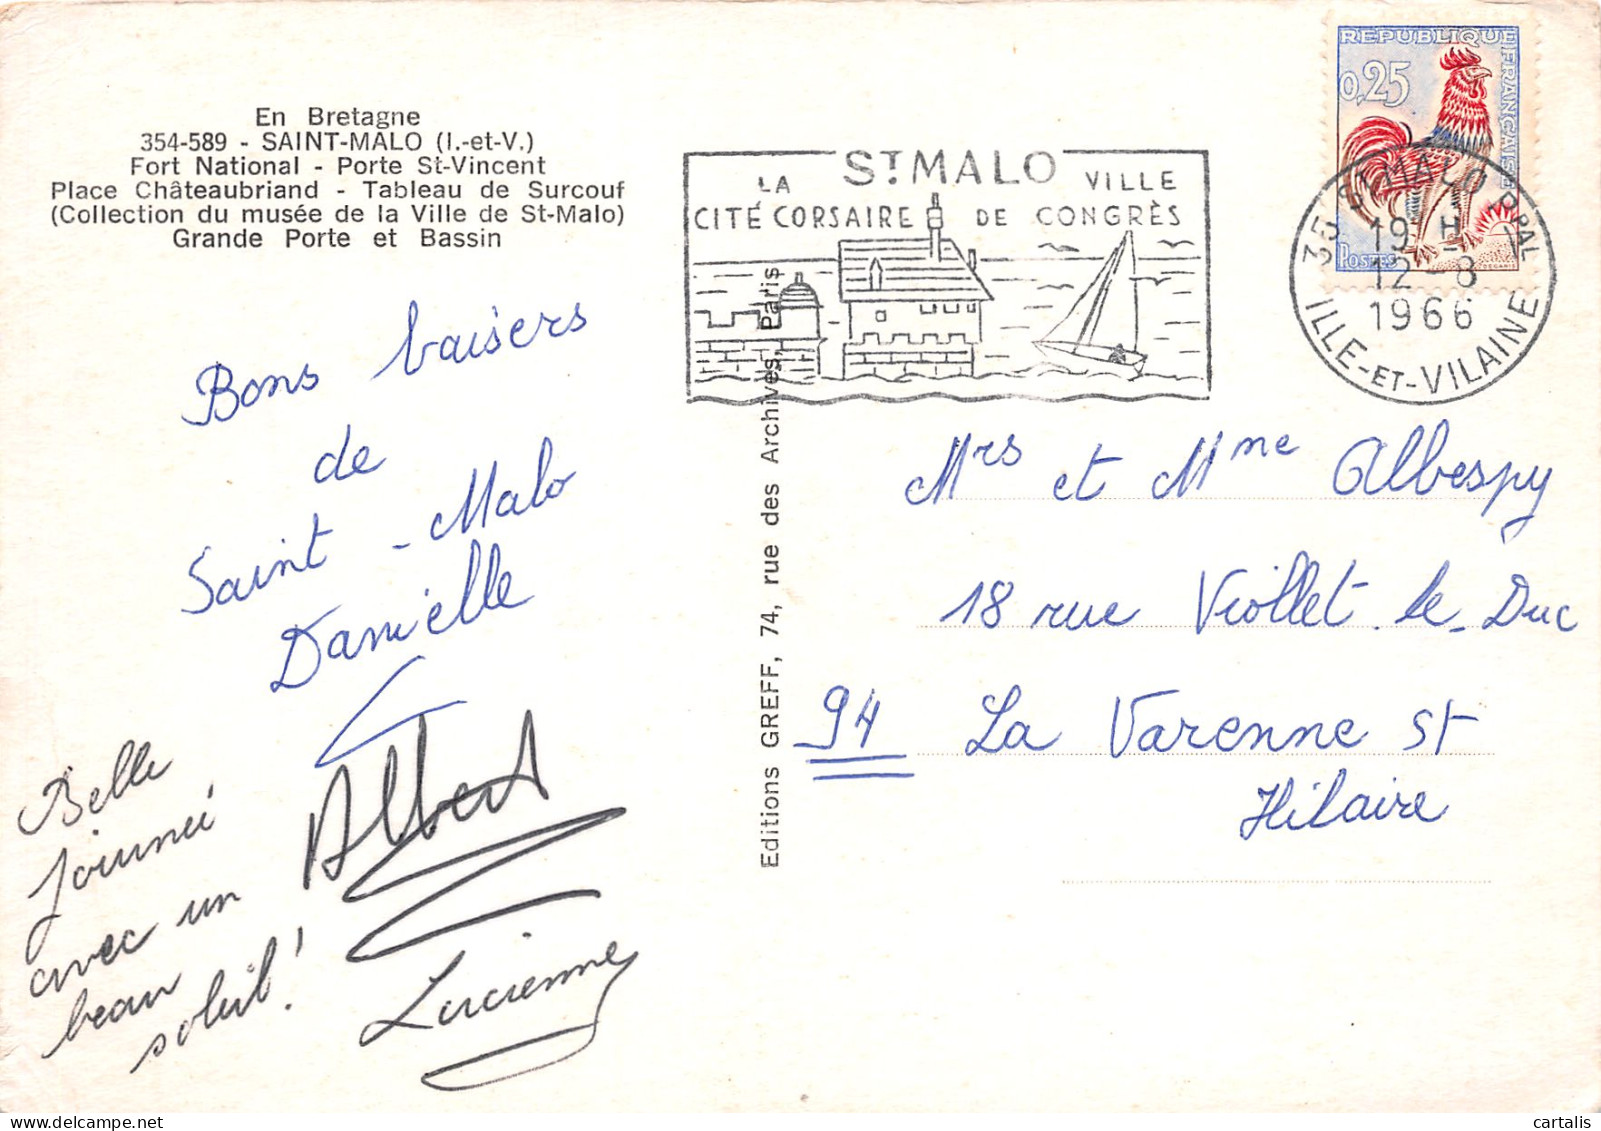 En Bretagne
354-589 - SAINT-MALO (I.-et-V.)
Fort National - Porte St-Vincent
Place Châteaubriand - Tableau de Surcouf
(Collection du musée de la Ville de St-Malo)
Grande Porte et Bassin
Bons baisers
de
Saint-Malo
Danielle
Belle
journée
avec un
beau
soleil!
Albert
Lucienne
Editions GREFF, 74, rue des Archives, Paris
ST MALO
LA VILLE
CITÉ CORSAIRE DE CONGRÈS
REPUBLIQUE FRANÇAISE
0,25
POSTES
35 ST MALO PPAL
19 H
12-8
1966
ILLE-ET-VILAINE
Mrs et Mme Albespy
18 rue Viollet-le-Duc
94 La Varenne St
Hilaire
cartalis